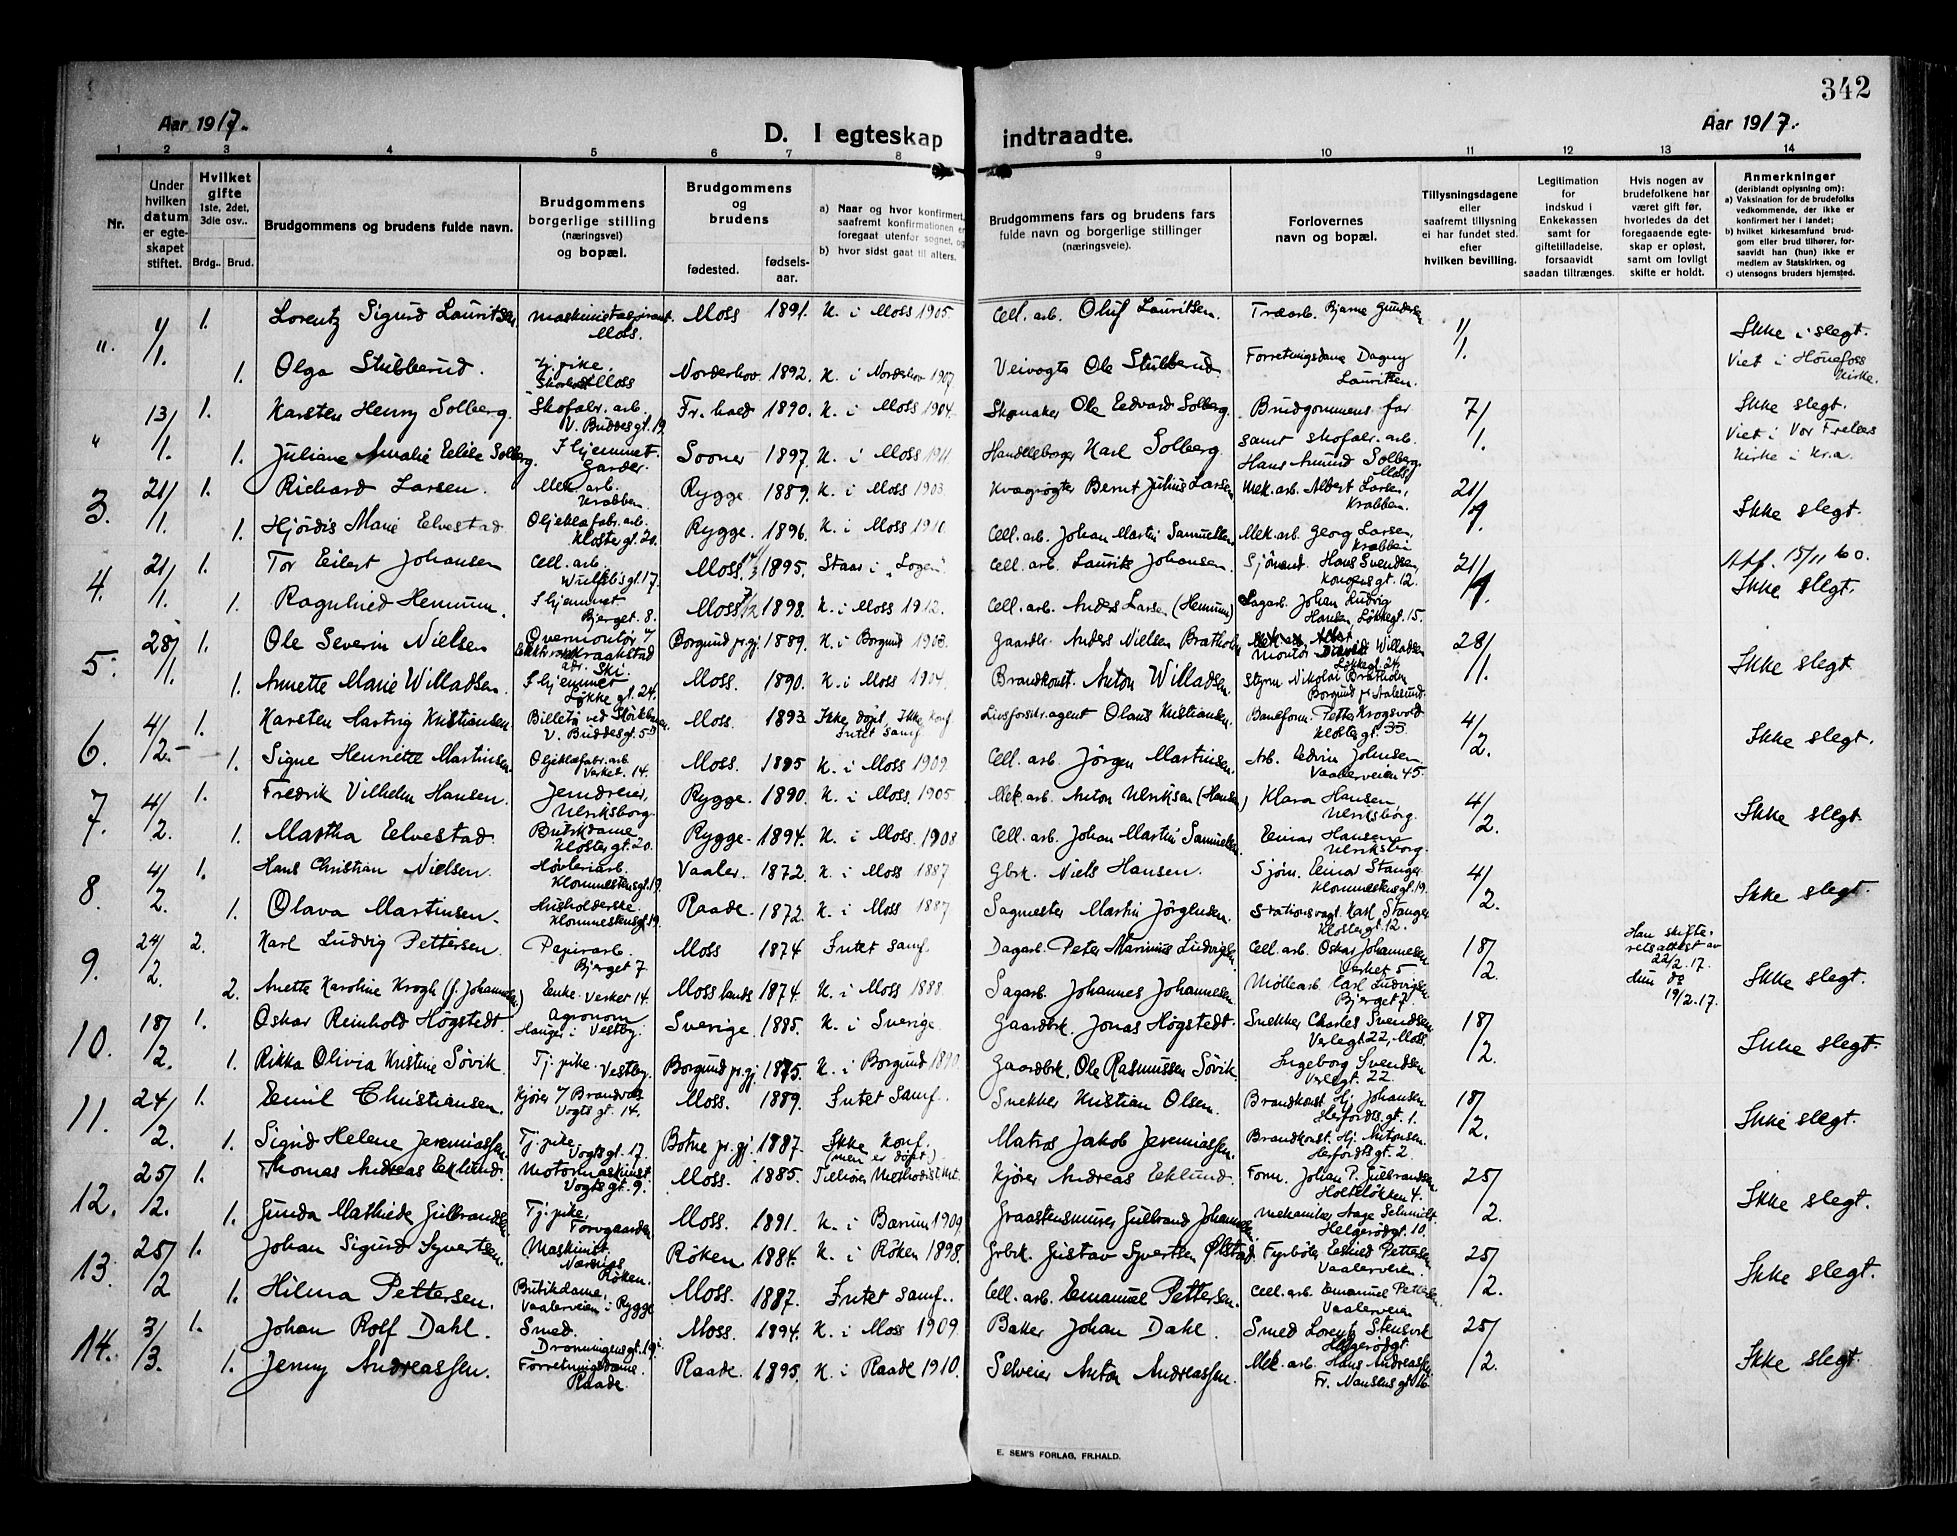 342
Aar 1917.
D. I egteskap indtraadte.
Aar 1917.
1 2 3 4 5 6 7 8 9 10 11 12 13 14
Nr.
Under hvilken datum er egteskapet stiftet.
Hvilket gifte 1ste, 2det, 3die osv..
Brdg.. Brud.
Brudgommens og brudens fulde navn.
Brudgommens borgerlige stilling (næringsvei) og bopæl.
Brudgommens og brudens
fødested. fødsels-aar.
a) Naar og hvor konfirmert, saafremt konfirmationen er foregaat utenfor sognet, og
b) hvor sidst gaat til alters.
Brudgommens fars og brudens fars fulde navn og borgerlige stillinger (næringsveie).
Forlovernes navn og bopæl.
Tillysningsdagene eller saafremt tillysning ei har fundet sted. efter hvilken bevilling.
Legitimation for indskud i Enkekassen samt for giftetilladelse, forsaavidt saadan tiltrænges.
Hvis nogen av brudefolkene har været gift før, hvorledes da det foregaaende egteskap er opløst, samt om lovligt skifte er holdt.
Anmerkninger (deriblandt oplysning om):
a) Vaksination for de brudefolks vedkommende, der ikke er konfirmert her i landet;
b) hvilket kirkesamfund brudgom eller brud tilhører, forsaavidt han (hun) ikke er medlem av Statskirken, og
c) utensogns bruders hjemsted.
". 1/1. 1. Lorentz Sigurd Lauritsen maskinistaspirant Moss. Moss 1891. K. i Moss 1905. Cell. arb. Oluf Lauritsen. Træarb. Bjarne Gundersen 1/1. Ikke i slegt.
1. Olga Stubberud. Tj. pike. Moss Norderhov 1892. K. i Norderhov 1907. Veivogter Ole Stubberud. Forretningsdame Dagny Lauritsen. Viet i Hønefoss Kirke.
" 13/1. 1. Karsten Henry Solberg. Skofabr. arb. V. Buddesgt. 19. Fr. hald 1890. K. i Moss 1904. Skomaker Ole Edvard Solberg. Brudgommens far 7/1. Ikke slegt.
1. Juliane Amalie Elise Solberg. I hjemmet. Garder. Sooner 1897. K. i Moss 1911 Handelsborger Karl Solberg. samt skofabr. arb. Hans Amund Solberg. Moss Viet i Vor Frelses Kirke i Kr.a.
3. 21/1. 1. Richard Larsen. Mek. arb. Krabben. Rygge 1889. K. i Moss 1903. Kvægrøgter Bernt Julius Larsen Mek. arb. Albert Larsen, Krabben. 21/1. Ikke slegt.
1. Hjørdis Marie Elvestad Oljeklæfabr. arb. Klostergt. 20. Rygge. 1896. K. i Moss 1910. Cell. arb. Johan Martin Samuelsen Mek. arb. Georg Larsen, Krabben
4. 21/1. 1. Tor Eilert Johansen Cell. arb. Wulfsbgt. 17. Moss. 1895. Staar i "Logen" Cell. arb. Laurits Johansen. Sjømand Hans Svendsen, Kongensgt. 12. 21/1. Att. 15/11 60. Ikke slegt.
1. Ragnhild Hennum. I hjemmet. Bjerget. 8. Moss 1898. K. i Moss 1912. Cell. arb. Anders Larsen (Hennum) Sagarb. Johan Ludvig Hansen, Løkkegt. 15.
5. 28/1. 1. Ole Severin Nielsen Overmontør v/ Kraakstad adr. Ski. Borgund pr.gj. 1889. K. i Borgund 1903. Gaardbr. Anders Nielsen Bratholm Montør Willadsen Løkkegt. 24. 28/1. Ikke slegt.
1. Annette Marie Willadsen. I hjemmet Løkkegt. 24. Moss. 1890. K. i Moss 1904. Brandkonst. Anton Willadsen. Styrm Nikolai Bratholm Borgund pr. Aalesund.
6. 4/2. 1. Karsten Hartvig Kristiansen. Billetør ved V. Buddesgt. 5 Moss. 1893. Ikke døpt, Ikke konf. Intet samf. Livsforsikr. agent Olaus Kristiansen. Baneform. Petter Krogsvold Klostergt. 33. 4/2. Ikke slegt.
1. Signe Henriette Martinsen. Oljeklæfabr. arb. Verket. 14. Moss. 1895 K. i Moss 1909. Cell. arb. Jørgen Martinsen. Arb. Edvin Johnsen Vaalerveien 45.
7. 4/2. 1. Fredrik Vilhelm Hansen. Jerndreier, Ulriksborg. Rygge. 1890. K. i Moss. 1905 Mek. arb. Anton Ulriksen (Hansen) Klara Hansen, Ulriksborg. 4/2. Ikke slegt.
1. Martha Elvestad. Butikdame Klostergt. 20. Rygge. 1894. K. i Moss 1908 Cell. arb. Johan Martin Samuelsen. Einar Hansen Ulriksborg.
8. 4/2. 1. Hans Christian Nielsen. Høvleriarb. Klommestensgt. 19. Vaaler. 1872. K. i Moss 1887 Gbrk. Niels Hansen. Sjøm. Einar Stanger Klommestensgt. 19. 4/2. Ikke slegt.
1. Olava Martinsen. Husholderske. Klommestensgt. 19. Raade. 1872. K. i Moss 1887 Sagmester Martin Jørgensen. Stationsvagt. Karl Stanger Klostergt. 12.
9. 24/2. 2. Karl Ludvig Pettersen. Papirarb. Bjerget 7 Moss 1874 Intet samf. Dagarb. Peter Marinius Ludvigsen. Cell. arb. Oskar Johannesen Verket 5 18/2. Han skifteretsattest av 22/2. 17. Hun do 19/2. 17. Ikke slegt.
2. Anette Karoline Krogh (f. Johannesen) Enke. Verket 14. Moss lands 1874. K. i Moss 1888 Sagarb. Johannes Johannesen. Møllearb. Carl Ludvigsen Bjerget 7
10. 18/2. 1. Oskar Reinhold Høgstedt. Agronom Hauger i Vestby. Sverige. 1885. K. i Sverige. Gaardbrk. Jonas Høgstedt. Snekker Charles Svendsen Verlegt. 22, Moss. 18/2. Ikke slegt.
1. Rikka Olivia Kristine Søvik. Tj. pike. Vestby. Borgund pr.gj. 1875. K. i Borgund 1890. Gaardbrk. Ole Rasmussen Søvik. Ingeborg Svendsen Verlegt. 22.
11. 24/2. 1. Emil Christiansen. Kjører v/ Brandvæs. Vogtsgt. 14. Moss. 1889. Intet samf. Snekker Kristian Olsen. Brandkonst. Hj. Johansen Herfordtsgt. 1. 18/2. Ikke slegt.
1. Sigrid Helene Jeremiassen. Tj. pike Vogtsgt. 17. Botne pr.gj. 1887. Ikke konf. (men er døpt.) Matros Jakob Jeremiassen. Brandkonst. Hj. Antonsen. Herfordtsgt. 2.
12. 25/2. 1. Thomas Andreas Eklund. Motormaskinist. Vogtsgt. 9. Moss. 1885. Tilhører Methodist K. Kjører Andreas Eklund. Form. Johan P. Gulbrandsen Holteløkken 4. 25/2. Ikke slegt.
1. Gunda Mathilde Gulbrandsen. Tj. pike. Torvgaarden Moss. 1891. K. i Bærum 1909. Graastensmurer Gulbrand Johannesen Mekaniker Aage Schmidt. Helgerødgt. 10.
13. 25/2 1. Johan Sigurd Syvertsen. Maskinist, Nærsnes Røken. Røken 1884. K. i Røken 1898. Grbrk. Gustav Syvertsen Ølstad. Fyrbøter Pettersen Vaalerveien. 25/2. Ikke slegt.
1. Hilma Pettersen. Butikdame, Vaalerveien i Rygge Moss. 1887. Intet samf.. Cell. arb. Emanuel Pettersen. Cell. arb. Emanuel Pettersen. Vaalerveien
14. 3/3. 1. Johan Rolf Dahl. Smed. Dronningensgt. 19. Moss. 1894. K. i Moss 1909. Baker Johan Dahl. Smed Lorentz Stensvik Helgerødgt. 25/2. Ikke slegt.
1. Jenny Andreassen. Forretningsdame. Raade. Raade. 1895. K. i Raade 1910. Selveier Anton Andreassen. Mek. arb. Hans Andreassen Fr. Nansensgt. 16
E. SEM'S FORLAG, FR.HALD.